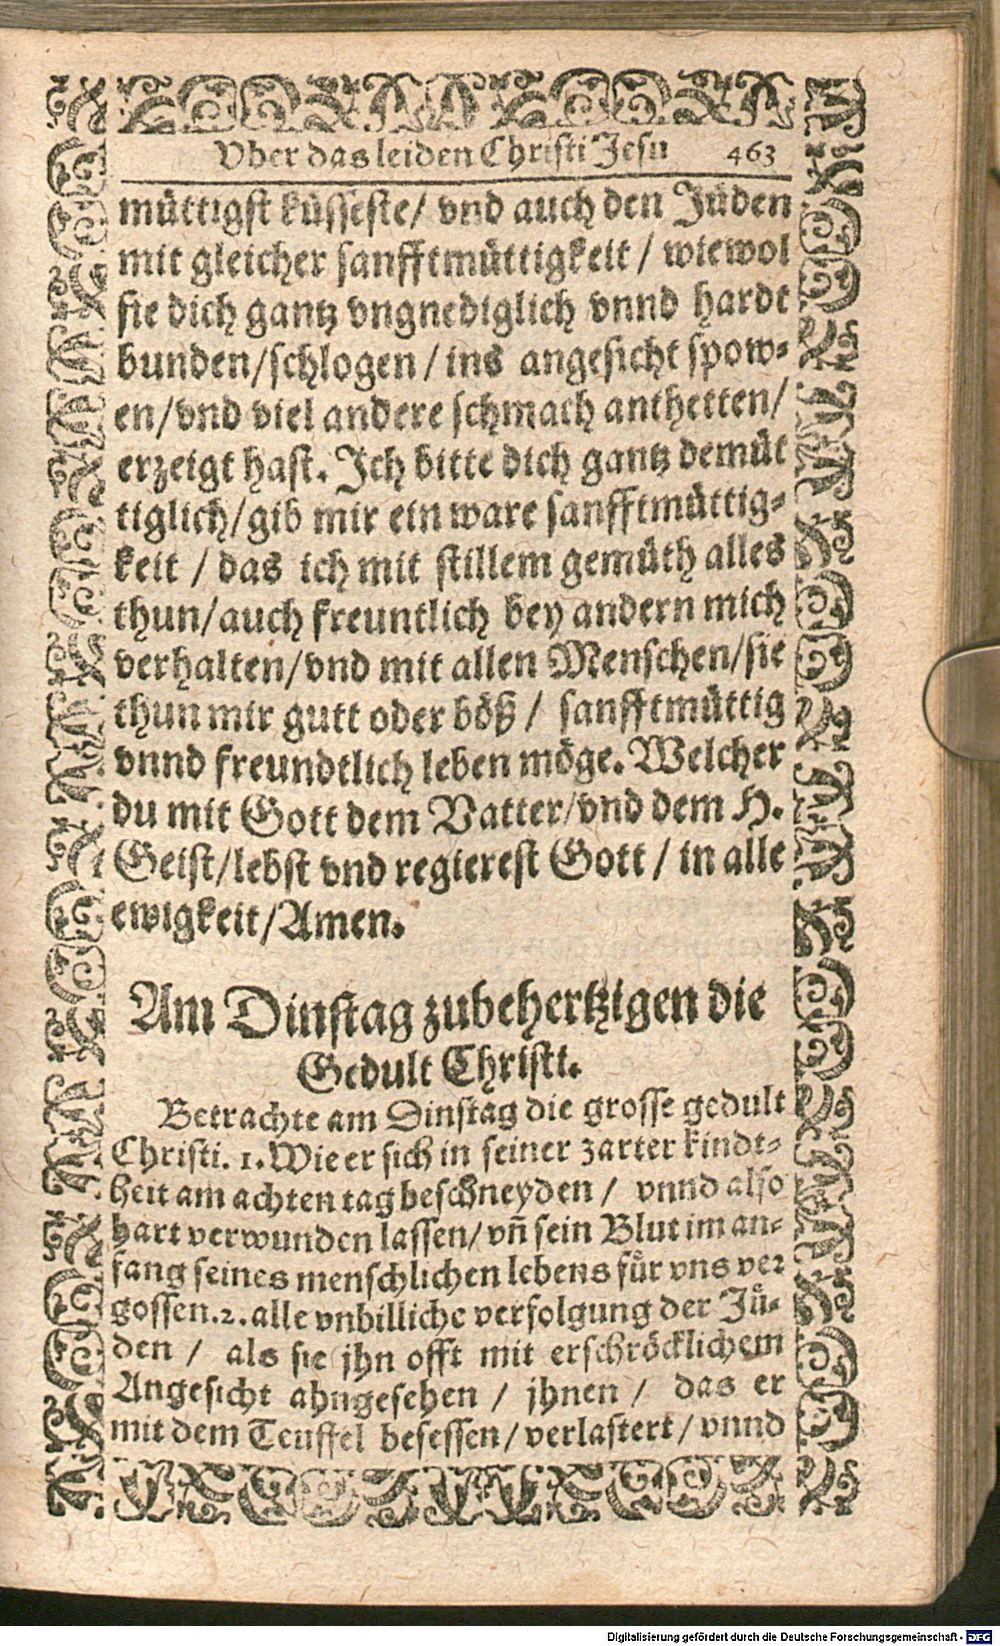 Vber das leiden Christi Jesu 463
müttigst küsseste/ vnd auch den Jüden
mit gleicher sanfftmüttigkeit / wiewol
sie dich gantz vngnediglich vnnd hardt
bunden/schlogen / ins angesicht spow⸗
en/vnd viel andere schmach anthetten/
erzeigt hast. Ich bitte dich gantz demüt
tiglich/gib mir ein ware sanfftmüttig⸗
keit / das ich mit stillem gemüth alles
thun/auch freuntlich bey andern mich
verhalten/vnd mit allen Menschen/sie
thun mir gutt oder böß / sanfftmüttig
vnnd freundtlich leben möge. Welcher
du mit Gott dem Vatter/vnd dem H.
Geist/lebst vnd regierest Gott / in alle
ewigkeit/Amen.
Am Dinstag zubehertzigen die
Gedult Christi.
Betrachte am Dinstag die grosse gedult
Christi. 1. Wie er sich in seiner zarter kindt⸗
heit am achten tag beschneyden / vnnd also
hart verwunden lassen/ vñ sein Blut im an⸗
fang seines menschlichen lebens fuͤr vns ver
gossen. 2. alle vnbilliche verfolgung der Juͤ⸗
den / als sie jhn offt mit erschröcklichem
Angesicht ahngesehen / jhnen / das er
mit dem Teuffel besessen/ verlastert/ vnnd
Digitalisierung gefördert durch die Deutsche Forschungsgemeinschaft - DFG